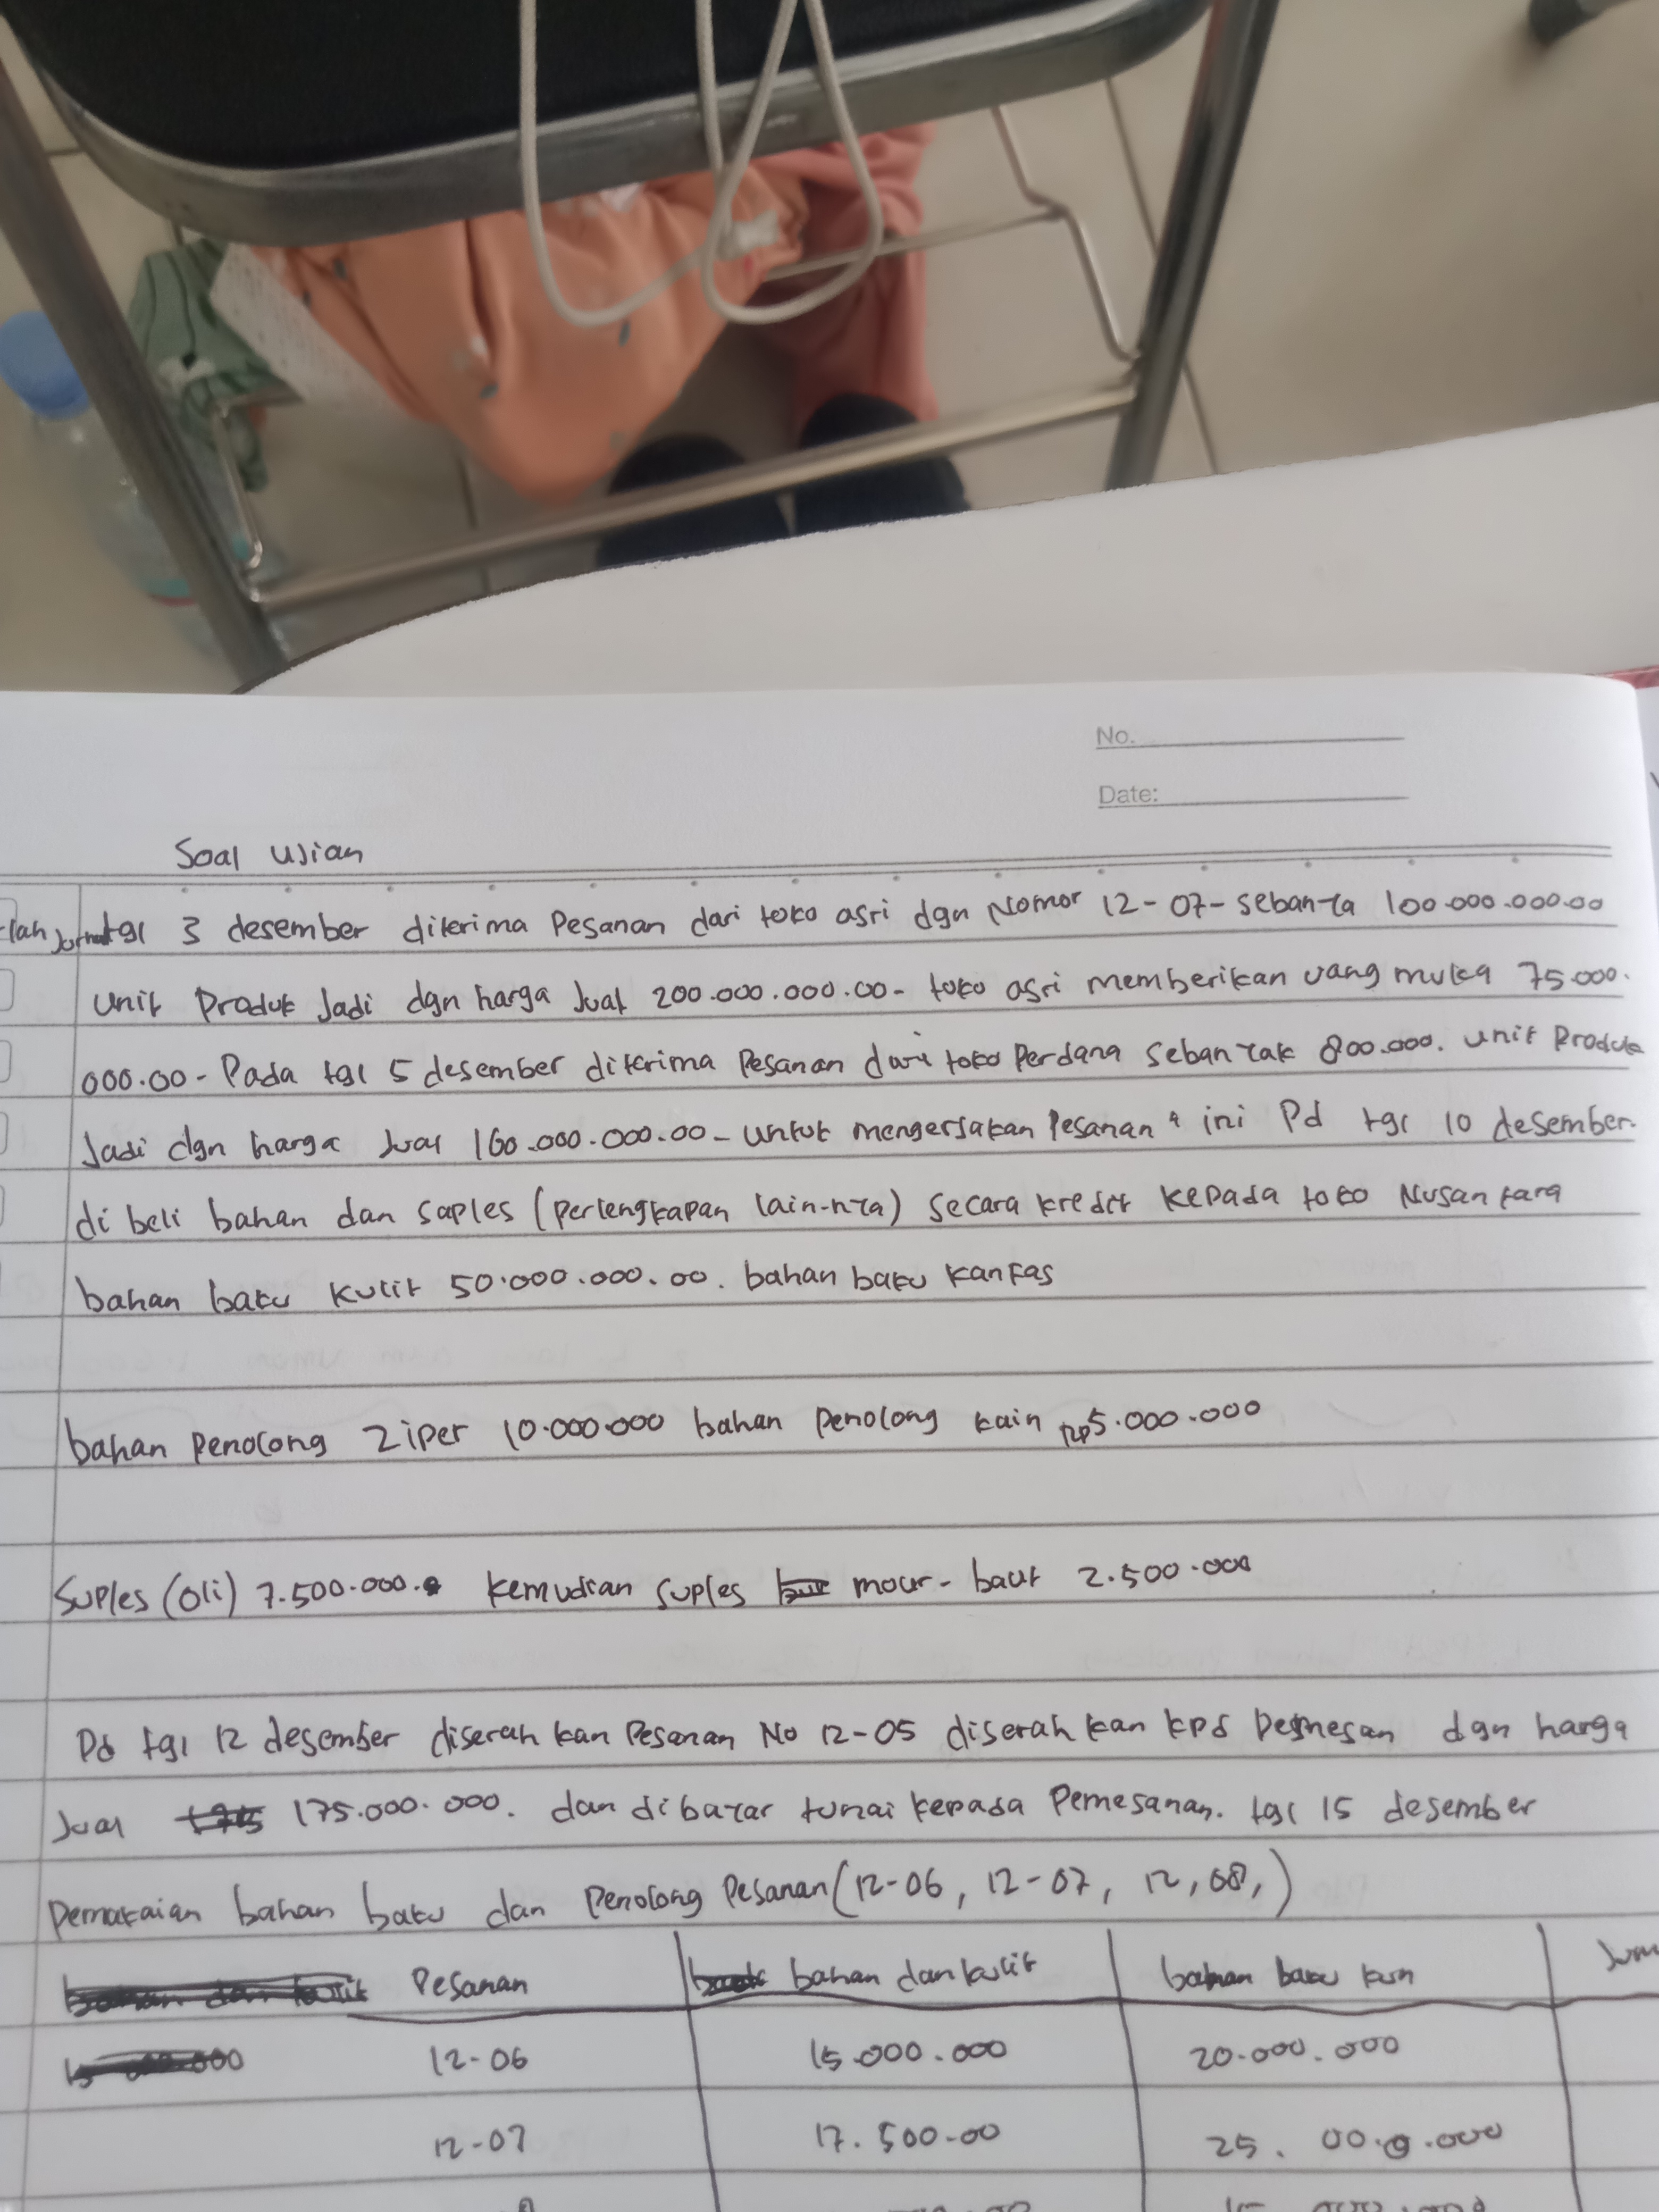 No.
Date:
Soal Ujian
tgl 3 desember diterima Pesanan dari toko asri dgn Nomor 12-07- sebanya 100.000.000.00
unit Produk Jadi dgn harga Jual 200.000.000.00- toko asri memberikan uang muka 75.000.
000.00- Pada tgl 5 desember diterima Pesanan dari toko Perdana sebanyak 800.000. unit Produk
Jadi dgn harga Jual 160.000.000.00- untuk mengerjakan Pesanan ini Pd tgl 10 desember.
di beli bahan dan saples (Perlengkapan lain-nya) secara kredit kepada toko Nusantara
bahan baku kulit 50.000.000.00. bahan baku kanfas
bahan Penolong Ziper 10.000.000 bahan Penolong kain Rp5.000.000
Suples (oli) 7.500.000. kemudian suples mour-baut 2.500.000
Pd tgl 12 desember diserah kan Pesanan No 12-05 diserah kan kpd Pemesan dgn harga
Jual 175.000.000. dan dibayar tunai kepada Pemesanan. tgl 15 desember
Pemakaian bahan baku dan Penolong Pesanan (12-06, 12-07, 12,08,)
Pesanan bahan dan kulit bahan baku
12-06 15.000.000 20.000.000
12-07 17.500.00 25.000.000